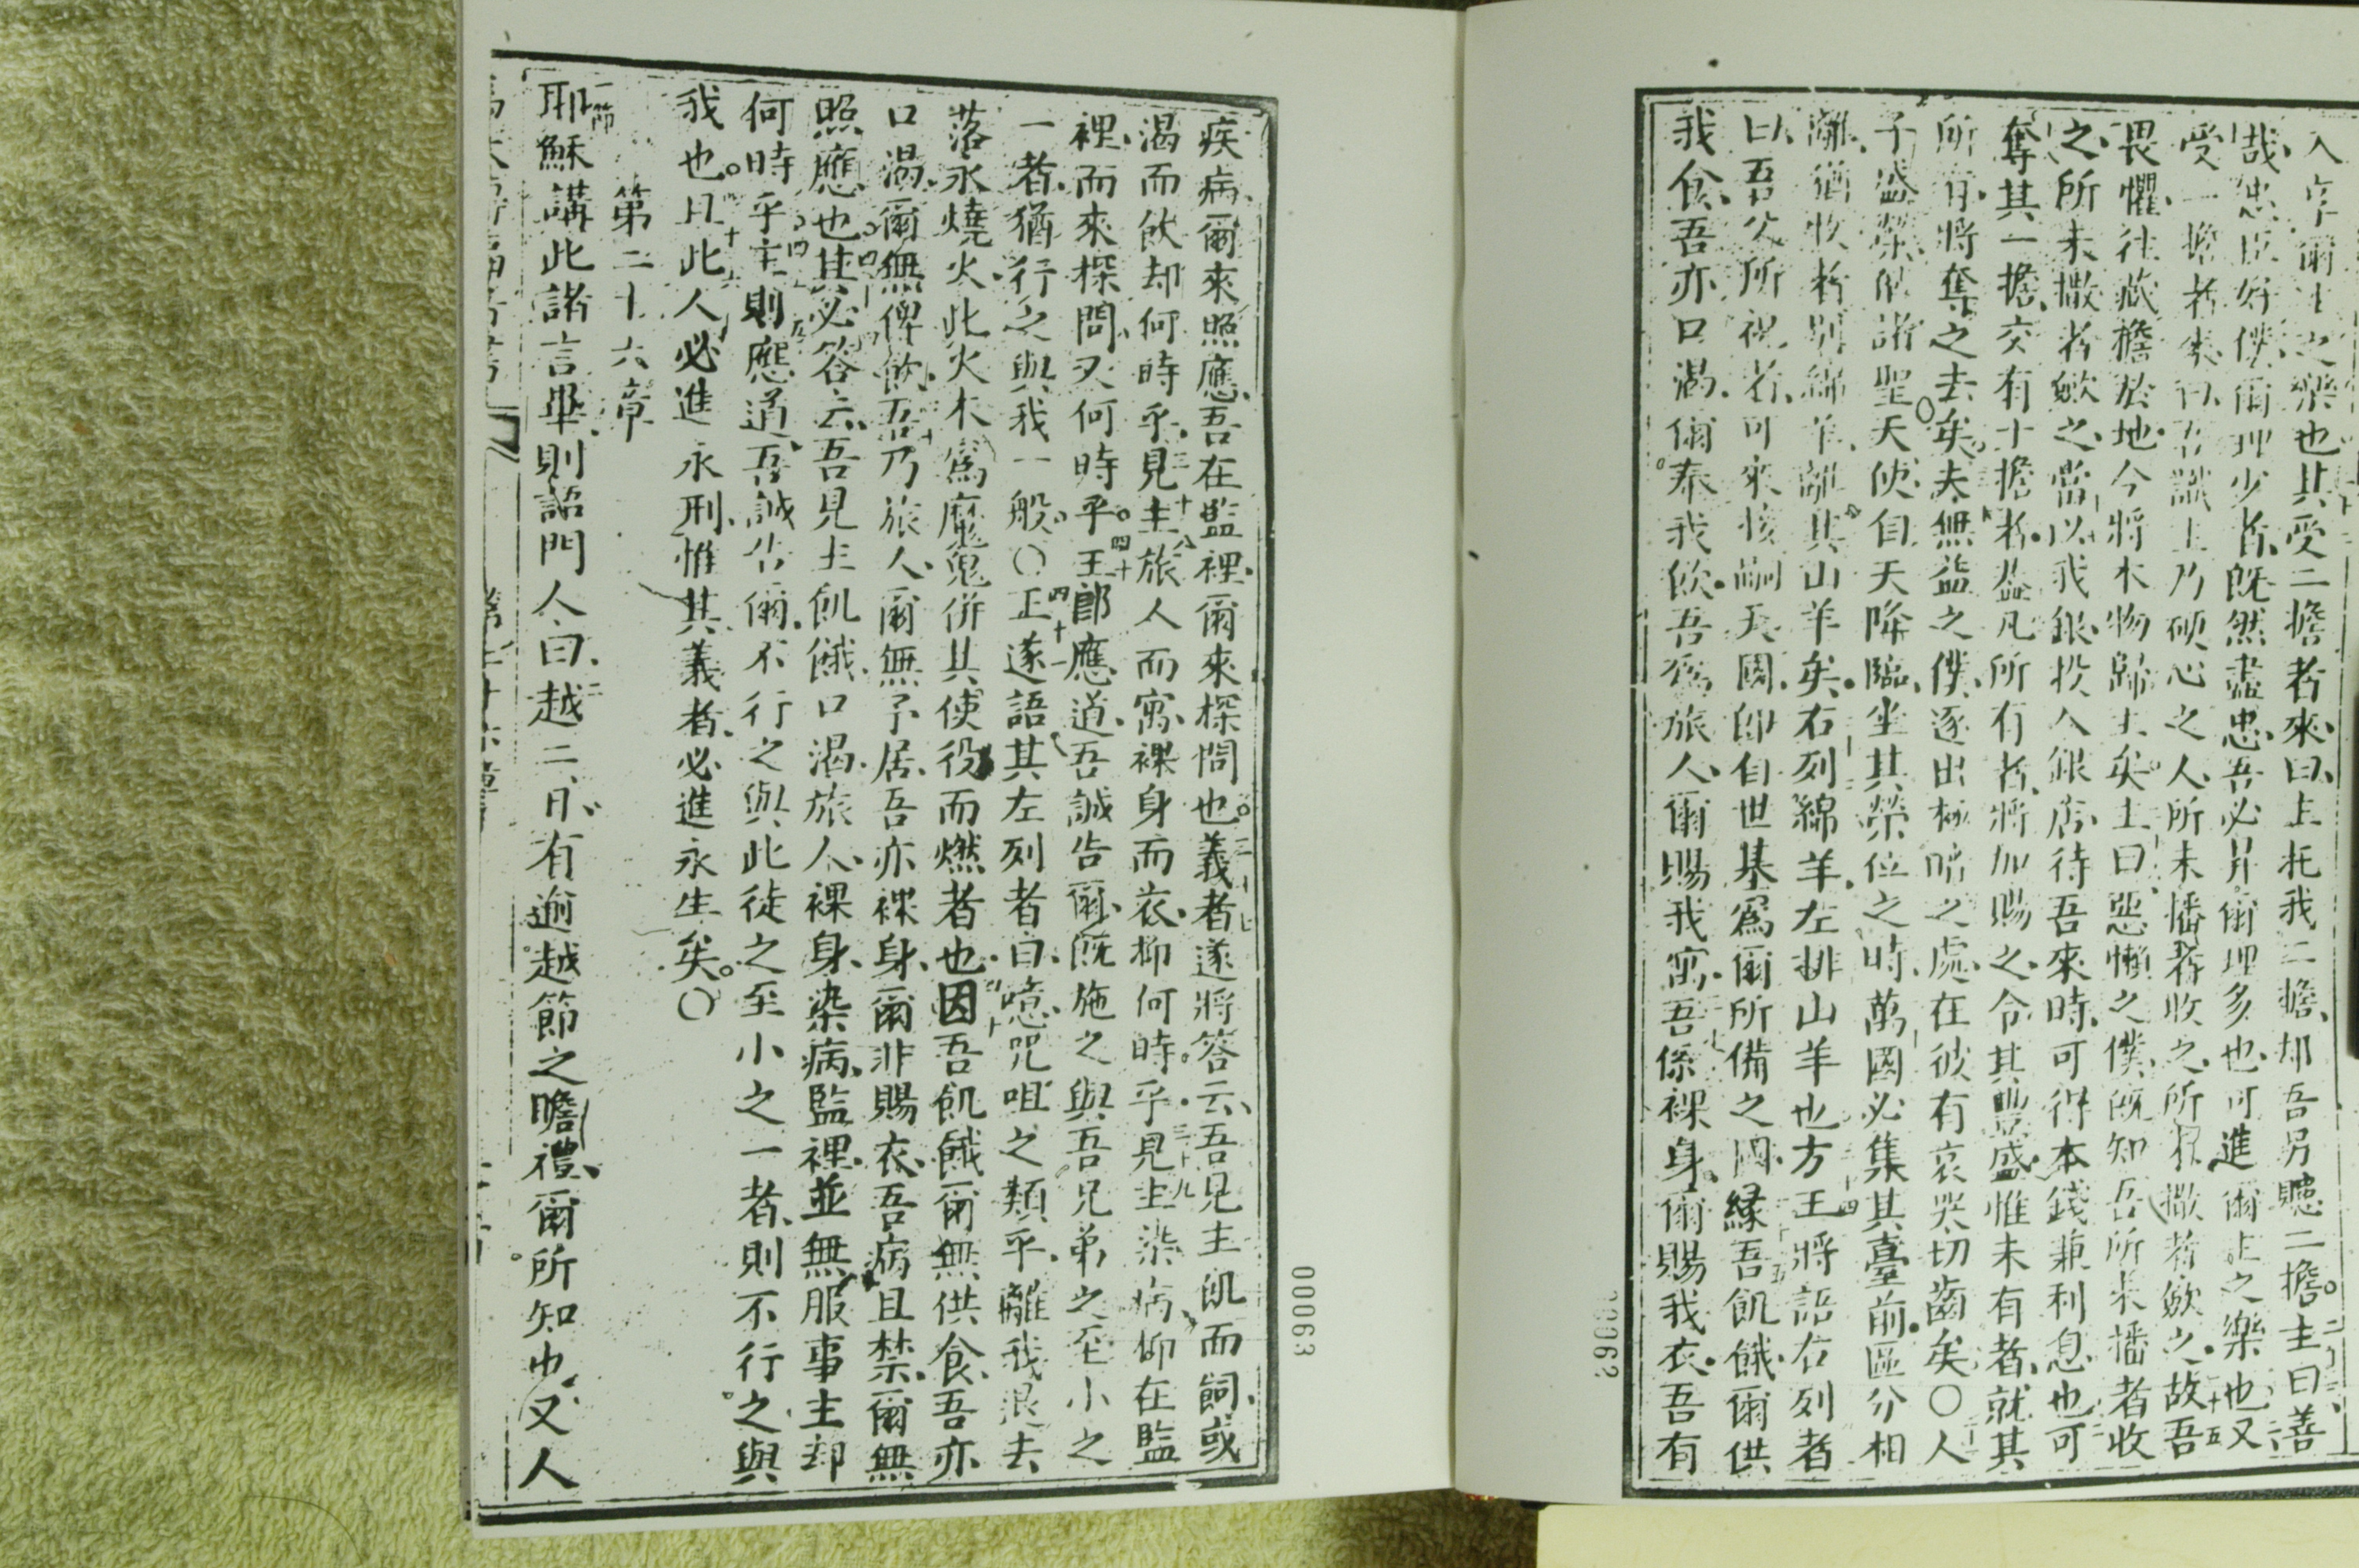 入享爾主之樂也其受二擔者來曰主托我二擔却吾另聽二擔主曰善
哉忠臣好僕爾理少者既然盡忠吾必昇爾理多也可進爾主之樂也又
受一擔者來曰吾識主乃硬心之人所未播者收之所未撒者歛之故吾
畏懼往藏擔於地今將本物歸主矣主曰惡懶之僕既知吾所未播者收
之所未撒者歛之當以我銀投入銀店待吾來時可得本錢兼利息也可
奪其一擔交有十擔者蓋凡所有者將加賜之令其豐盛惟未有者就其
所有將奪之去矣夫無益之僕逐出極暗之處在彼有哀哭切齒矣〇人
子盛榮偕諸聖天使自天降臨坐其榮位之時萬國必集其臺前區分相
離猶牧者別綿羊離其山羊矣右列綿羊左排山羊也方王將語右列者
曰吾父所祝者可來接嗣天國即自世基爲爾所備之國緣吾飢餓爾供
我食吾亦口渴爾奉我飲吾爲旅人爾賜我寓吾係裸身爾賜我衣吾有
00062
疾病爾來照應吾在監裡爾來探問也義者遂將答云吾見主飢而飼或
渴而飲却何時乎見主旅人而寓裸身而衣抑何時乎見主染病抑在監
裡而來探問又何時乎王郎應道吾誠告爾既施之與吾兄弟之至小之
一者猶行之與我一般〇王遂語其左列者曰噫咒咀之類乎離我退去
落永燒火此火本爲魔鬼併其使役而燃者也因吾飢餓爾無供食吾亦
口渴爾無俾飲吾乃旅人爾無予居吾亦裸身爾非賜衣吾病且禁爾無
照應也其必答云吾見主飢餓口渴旅人裸身染病監裡並無服事主却
何時乎主則應道吾誠告爾不行之與此徒之至小之一者則不行之與
我也且此人必進永刑惟其義者必進永生矣〇
第二十六章
一節
耶穌講此諸言畢則詔門人曰越二日有逾越節之瞻禮爾所知也又人
00063